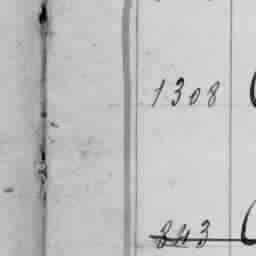 1308
843